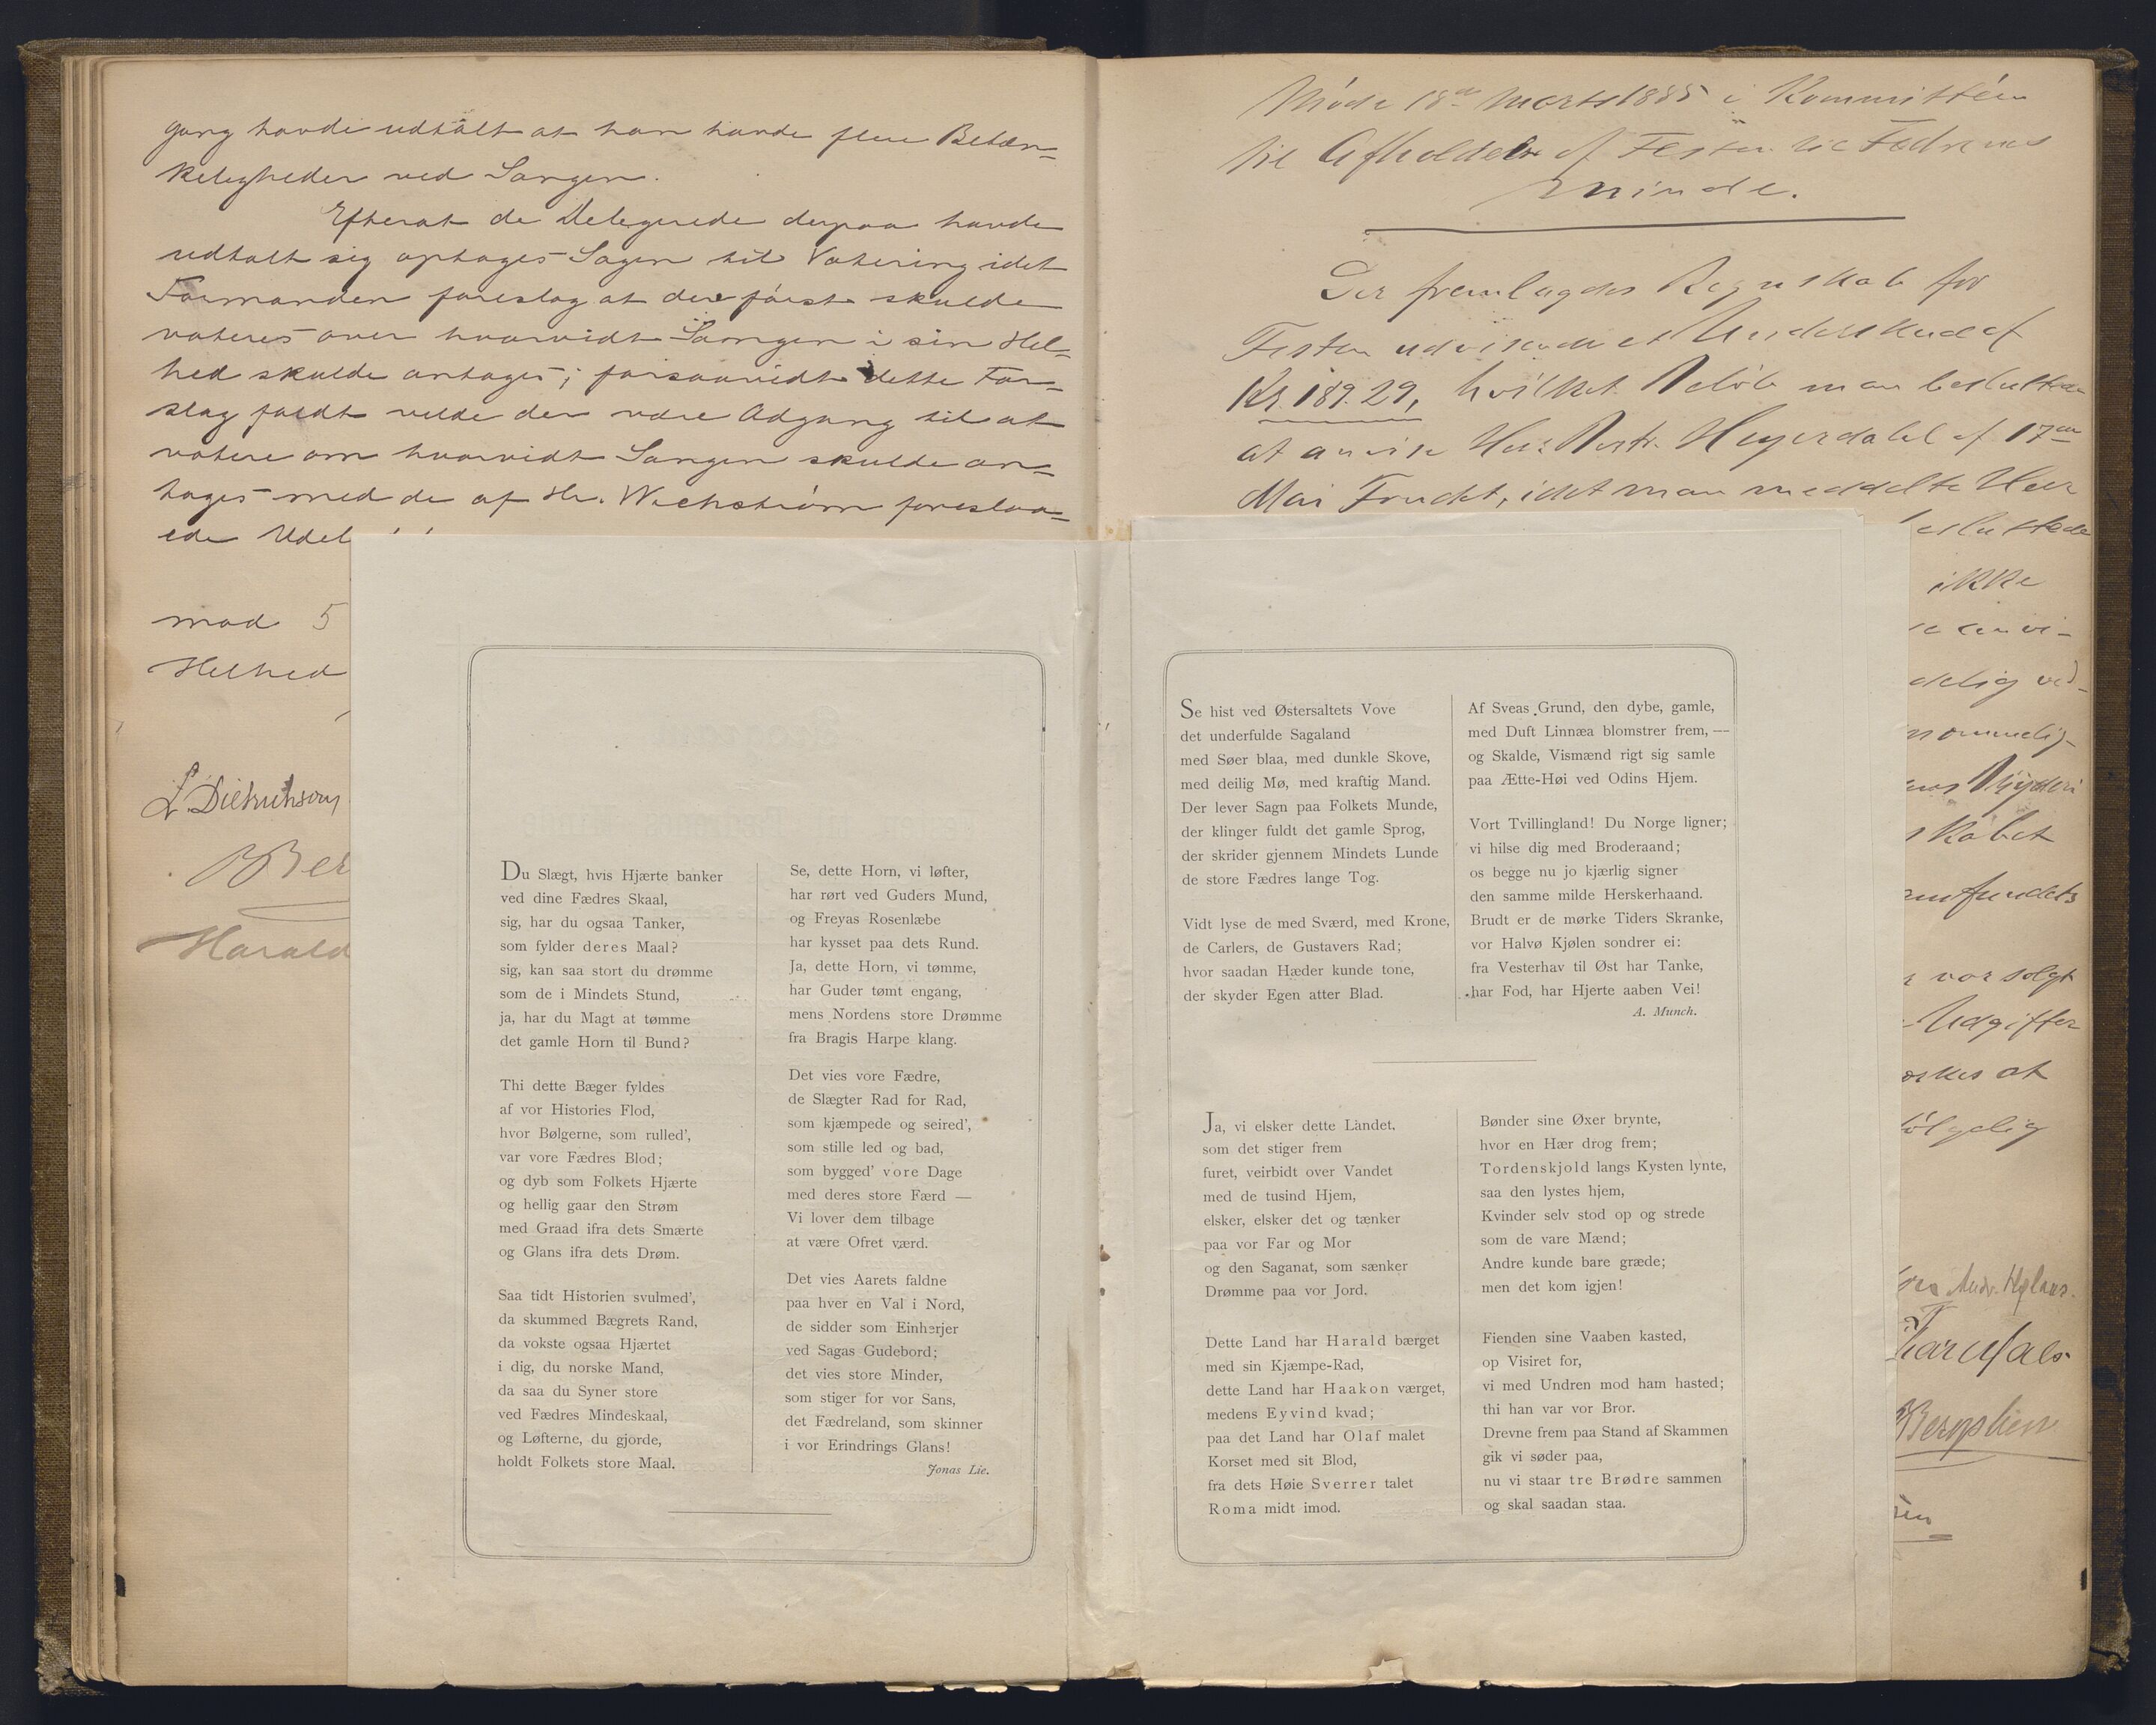 gang havde udtalt at han havde flere Betæn-
keligheder ved Sangen.
Efterat de Delegerede derpaa havde
udtalt sig optages Sagen til Votering idet
Formanden foreslog at der først skulde
voteres over hvorvidt Sangen i sin Hel-
hed skulde antages; forsaavidt dette For-
slag faldt vilde der være Adgang til at
votere om hvorvidt Sangen skulde an-
tages med de af Hr. Wichstrøm foreslaa-
ede Udel
mod 5
Helhed
L. Dietrichson
B Ber
Harald
Du Slægt, hvis Hjærte banker
ved dine Fædres Skaal,
sig, har du ogsaa Tanker,
som fylder deres Maal?
sig, kan saa stort du drømme
som de i Mindets Stund,
ja, har du Magt at tømme
det gamle Horn til Bund?
Thi dette Bæger fyldes
af vor Histories Flod,
hvor Bølgerne, som rulled',
var vore Fædres Blod;
og dyb som Folkets Hjærte
og hellig gaar den Strøm
med Graad ifra dets Smærte
og Glans ifra dets Drøm.
Saa tidt Historien svulmed',
da skummed Bægrets Rand,
da vokste ogsaa Hjærtet
i dig, du norske Mand,
da saa du Syner store
ved Fædres Mindeskaal,
og Løfterne, du gjorde,
holdt Folkets store Maal.
Se, dette Horn, vi løfter,
har rørt ved Guders Mund,
og Freyas Rosenlæbe
har kysset paa dets Rund.
Ja, dette Horn, vi tømme,
har Guder tømt engang,
mens Nordens store Drømme
fra Bragis Harpe klang.
Det vies vore Fædre,
de Slægter Rad for Rad,
som kjæmpede og seired',
som stille led og bad,
som bygged' vore Dage
med deres store Færd —
Vi lover dem tilbage
at være Ofret værd.
Det vies Aarets faldne
paa hver en Val i Nord,
de sidder som Einherjer
ved Sagas Gudebord;
det vies store Minder,
som stiger for vor Sans,
det Fædreland, som skinner
i vor Erindrings Glans!
Jonas Lie.
Møde 18de Marts 1885 i Kommittéen
til Afholdelse af Festen til Fædrenes
Minde.
Der fremlagdes Regnskab for
Festen udvisende et Underskud af
Kr. 189.29, hvilket Beløb man besluttede
at anvise Herr Heyerdahl af 17de
Mai Fondet, idet man meddelte Herr
besluttede
ikke
delig ved-
skabet
samfundets
var solgt
Udgifter
at
Bergslien
Se hist ved Østersaltets Vove
det underfulde Sagaland
med Søer blaa, med dunkle Skove,
med deilig Mø, med kraftig Mand.
Der lever Sagn paa Folkets Munde,
der klinger fuldt det gamle Sprog,
der skrider gjennem Mindets Lunde
de store Fædres lange Tog.
Vidt lyse de med Sværd, med Krone,
de Carlers, de Gustavers Rad;
hvor saadan Hæder kunde tone,
der skyder Egen atter Blad.
Af Sveas Grund, den dybe, gamle,
med Duft Linnæa blomstrer frem, —
og Skalde, Vismænd rigt sig samle
paa Ætte-Høi ved Odins Hjem.
Vort Tvillingland! Du Norge ligner;
vi hilse dig med Broderaand;
os begge nu jo kjærlig signer
den samme milde Herskerhaand.
Brudt er de mørke Tiders Skranke,
vor Halvø Kjølen sondrer ei:
fra Vesterhav til Øst har Tanke,
har Fod, har Hjerte aaben Vei!
A. Munch.
Ja, vi elsker dette Landet,
som det stiger frem
furet, veirbidt over Vandet
med de tusind Hjem,
elsker, elsker det og tænker
paa vor Far og Mor
og den Saganat, som sænker
Drømme paa vor Jord.
Dette Land har Harald bærget
med sin Kjæmpe-Rad,
dette Land har Haakon værget,
medens Eyvind kvad;
paa det Land har Olaf malet
Korset med sit Blod,
fra dets Høie Sverrer talet
Roma midt imod.
Bønder sine Øxer brynte,
hvor en Hær drog frem;
Tordenskjold langs Kysten lynte,
saa den lystes hjem,
Kvinder selv stod op og strede
som de vare Mænd;
Andre kunde bare græde;
men det kom igjen!
Fienden sine Vaaben kasted,
op Visiret for,
vi med Undren mod ham hasted;
thi han var vor Bror.
Drevne frem paa Stand af Skammen
gik vi søder paa,
nu vi staar tre Brødre sammen
og skal saadan staa.